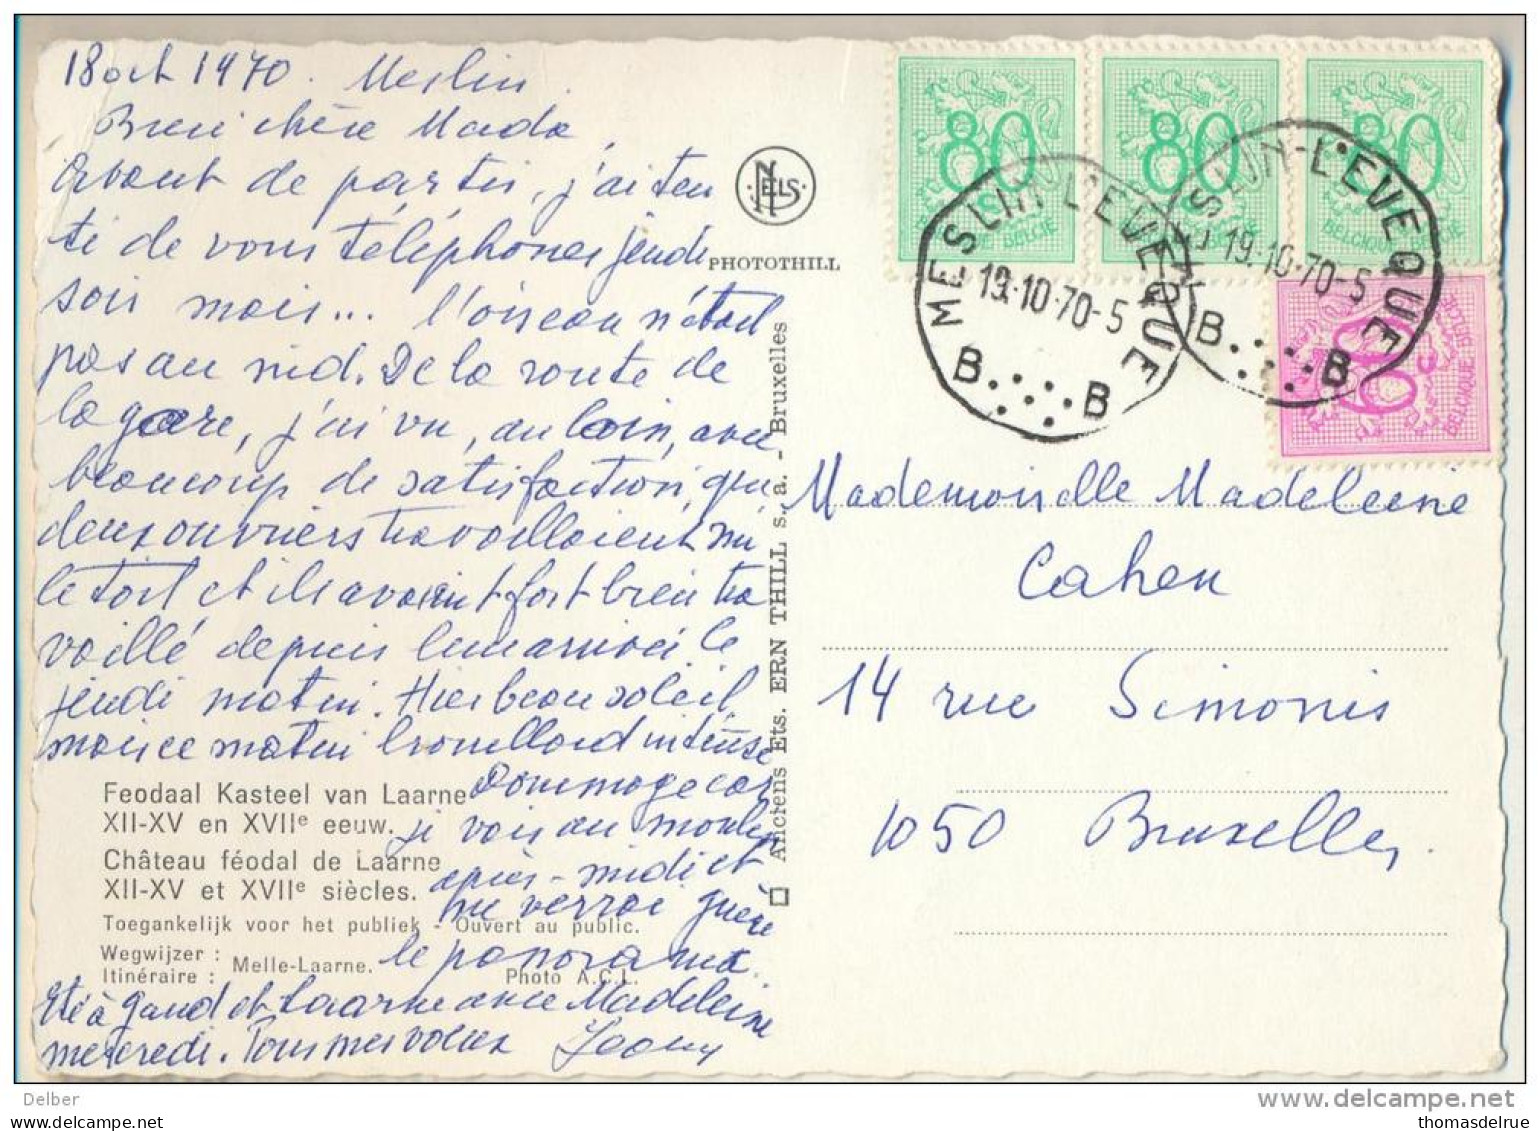 18 oct 1970. Meslin.
Bien chère Mada,
Avant de partir, j'ai ten
té de vous téléphoner jeudi
soir mais... l'oiseau n'était
pas au nid. De la route de
la gare, j'ai vu, au loin, avec
beaucoup de satisfaction, que
deux ouvriers travaillaient sur
le toit et ils avaient fort bien tra
vaillé depuis leur arrivée le
jeudi matin. Hier beau soleil,
mais ce matin brouillard intense
Dommage car
je vais au moulin
après-midi et
ne verrai guère
le panorama.
Eté à Gand et Laarne avec Madeleine
mercredi. Tous mes voeux
Feodaal Kasteel van Laarne
XII-XV en XVIIe eeuw.
Château féodal de Laarne
XII-XV et XVIIe siècles.
Toegankelijk voor het publiek - Ouvert au public.
Wegwijzer :
Itinéraire : Melle-Laarne.
Photo A.C.L.
NELS
PHOTOTHILL
Anciens Ets. ERN THILL s. a. - Bruxelles
80
BELGIE
80
BELGIE
80
BELGIQUE BELGIE
60c
BELGIQUE BELGIE
MESLIN-L'EVEQUE
19.10.70-5
B B
MESLIN-L'EVEQUE
19.10.70-5
B B
Mademoiselle Madeleine
Cahen
14 rue Simonis
1050 Bruxelles.
Delber
www.delcampe.net
www.delcampe.net
thomasdelrue